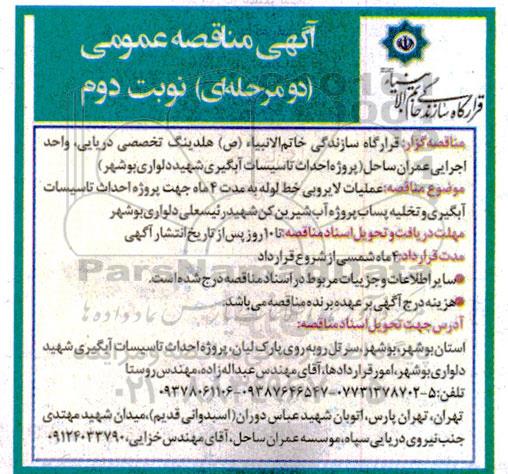 آگهی مناقصه عمومی
(دو مرحله‌ای) نوبت دوم
قرارگاه سازندگی خاتم الانبیاء
مناقصه گزار: قرارگاه سازندگی خاتم الانبیاء (ص) هلدینگ تخصصی دریایی، واحد
اجرایی عمران ساحل (پروژه احداث تاسیسات آبگیری شهید دلواری بوشهر)
موضوع مناقصه: عملیات لایروبی خط لوله به مدت ۴ ماه جهت پروژه احداث تاسیسات
آبگیری و تخلیه پساب پروژه آب شیرین کن شهید رئیسعلی دلواری بوشهر
مهلت دریافت و تحویل اسناد مناقصه: تا ۱۰ روز پس از تاریخ انتشار آگهی
مدت قرارداد: ۴ ماه شمسی از شروع قرارداد
سایر اطلاعات و جزییات مربوط در اسناد مناقصه درج شده است.
هزینه درج آگهی بر عهده برنده مناقصه می‌باشد.
آدرس جهت تحویل اسناد مناقصه:
استان بوشهر، بوشهر، سر تل روبه روی پارک لیان، پروژه احداث تاسیسات آبگیری شهید
دلواری بوشهر، امور قراردادها، آقای مهندس عبداله زاده، مهندس روستا
تلفن: ۵-۰۷۷۳۱۳۷۸۷۰۲-۰۹۳۸۷۶۴۶۵۴۷-۰۹۳۷۸۰۶۱۱۰۶
تهران، تهران پارس، اتوبان شهید عباس دوران (اسیدوانی قدیم)، میدان شهید مهتدی
جنب نیروی دریایی سپاه، موسسه عمران ساحل، آقای مهندس خزایی، ۰۹۱۲۴۰۳۳۷۹۰
ParsNamadData